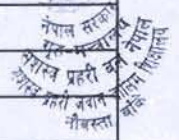 नेपाल सरकार
गृह मन्त्रालय
सशस्त्र प्रहरी बल नेपाल
सशस्त्र प्रहरी जवान तालिम शिक्षालय
नौबस्ता बाँके